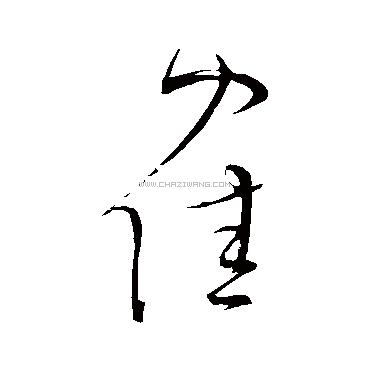 雀
WWW.CHAZIWANG.COM